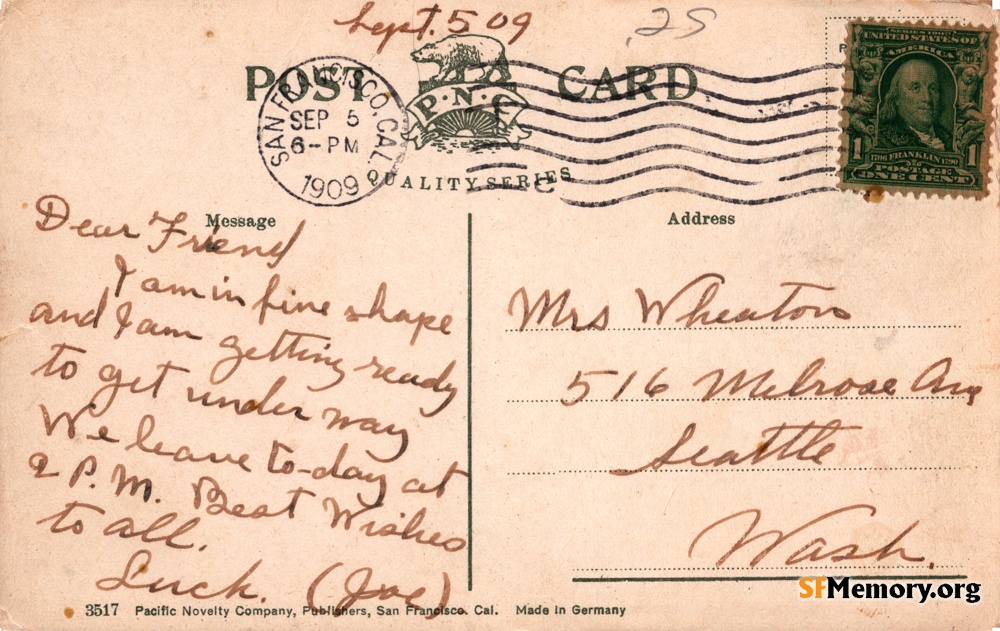 Sept. 5 09
25
POST CARD
P.N.C.
QUALITY SERIES
SAN FRANCISCO, CAL.
SEP 5
6-PM
1909
SERIES 1902
UNITED STATES OF
AMERICA
1 1
1706 FRANKLIN 1790
POSTAGE
ONE CENT
Message
Dear Friend
I am in fine shape
and I am getting ready
to get under way
We leave to-day at
2 P.M. Best Wishes
to all.
Luck. (Joe)
Address
Mrs Wheaton
516 Melrose Ave
Seattle
Wash.
3517 Pacific Novelty Company, Publishers, San Francisco. Cal. Made in Germany
SFMemory.org